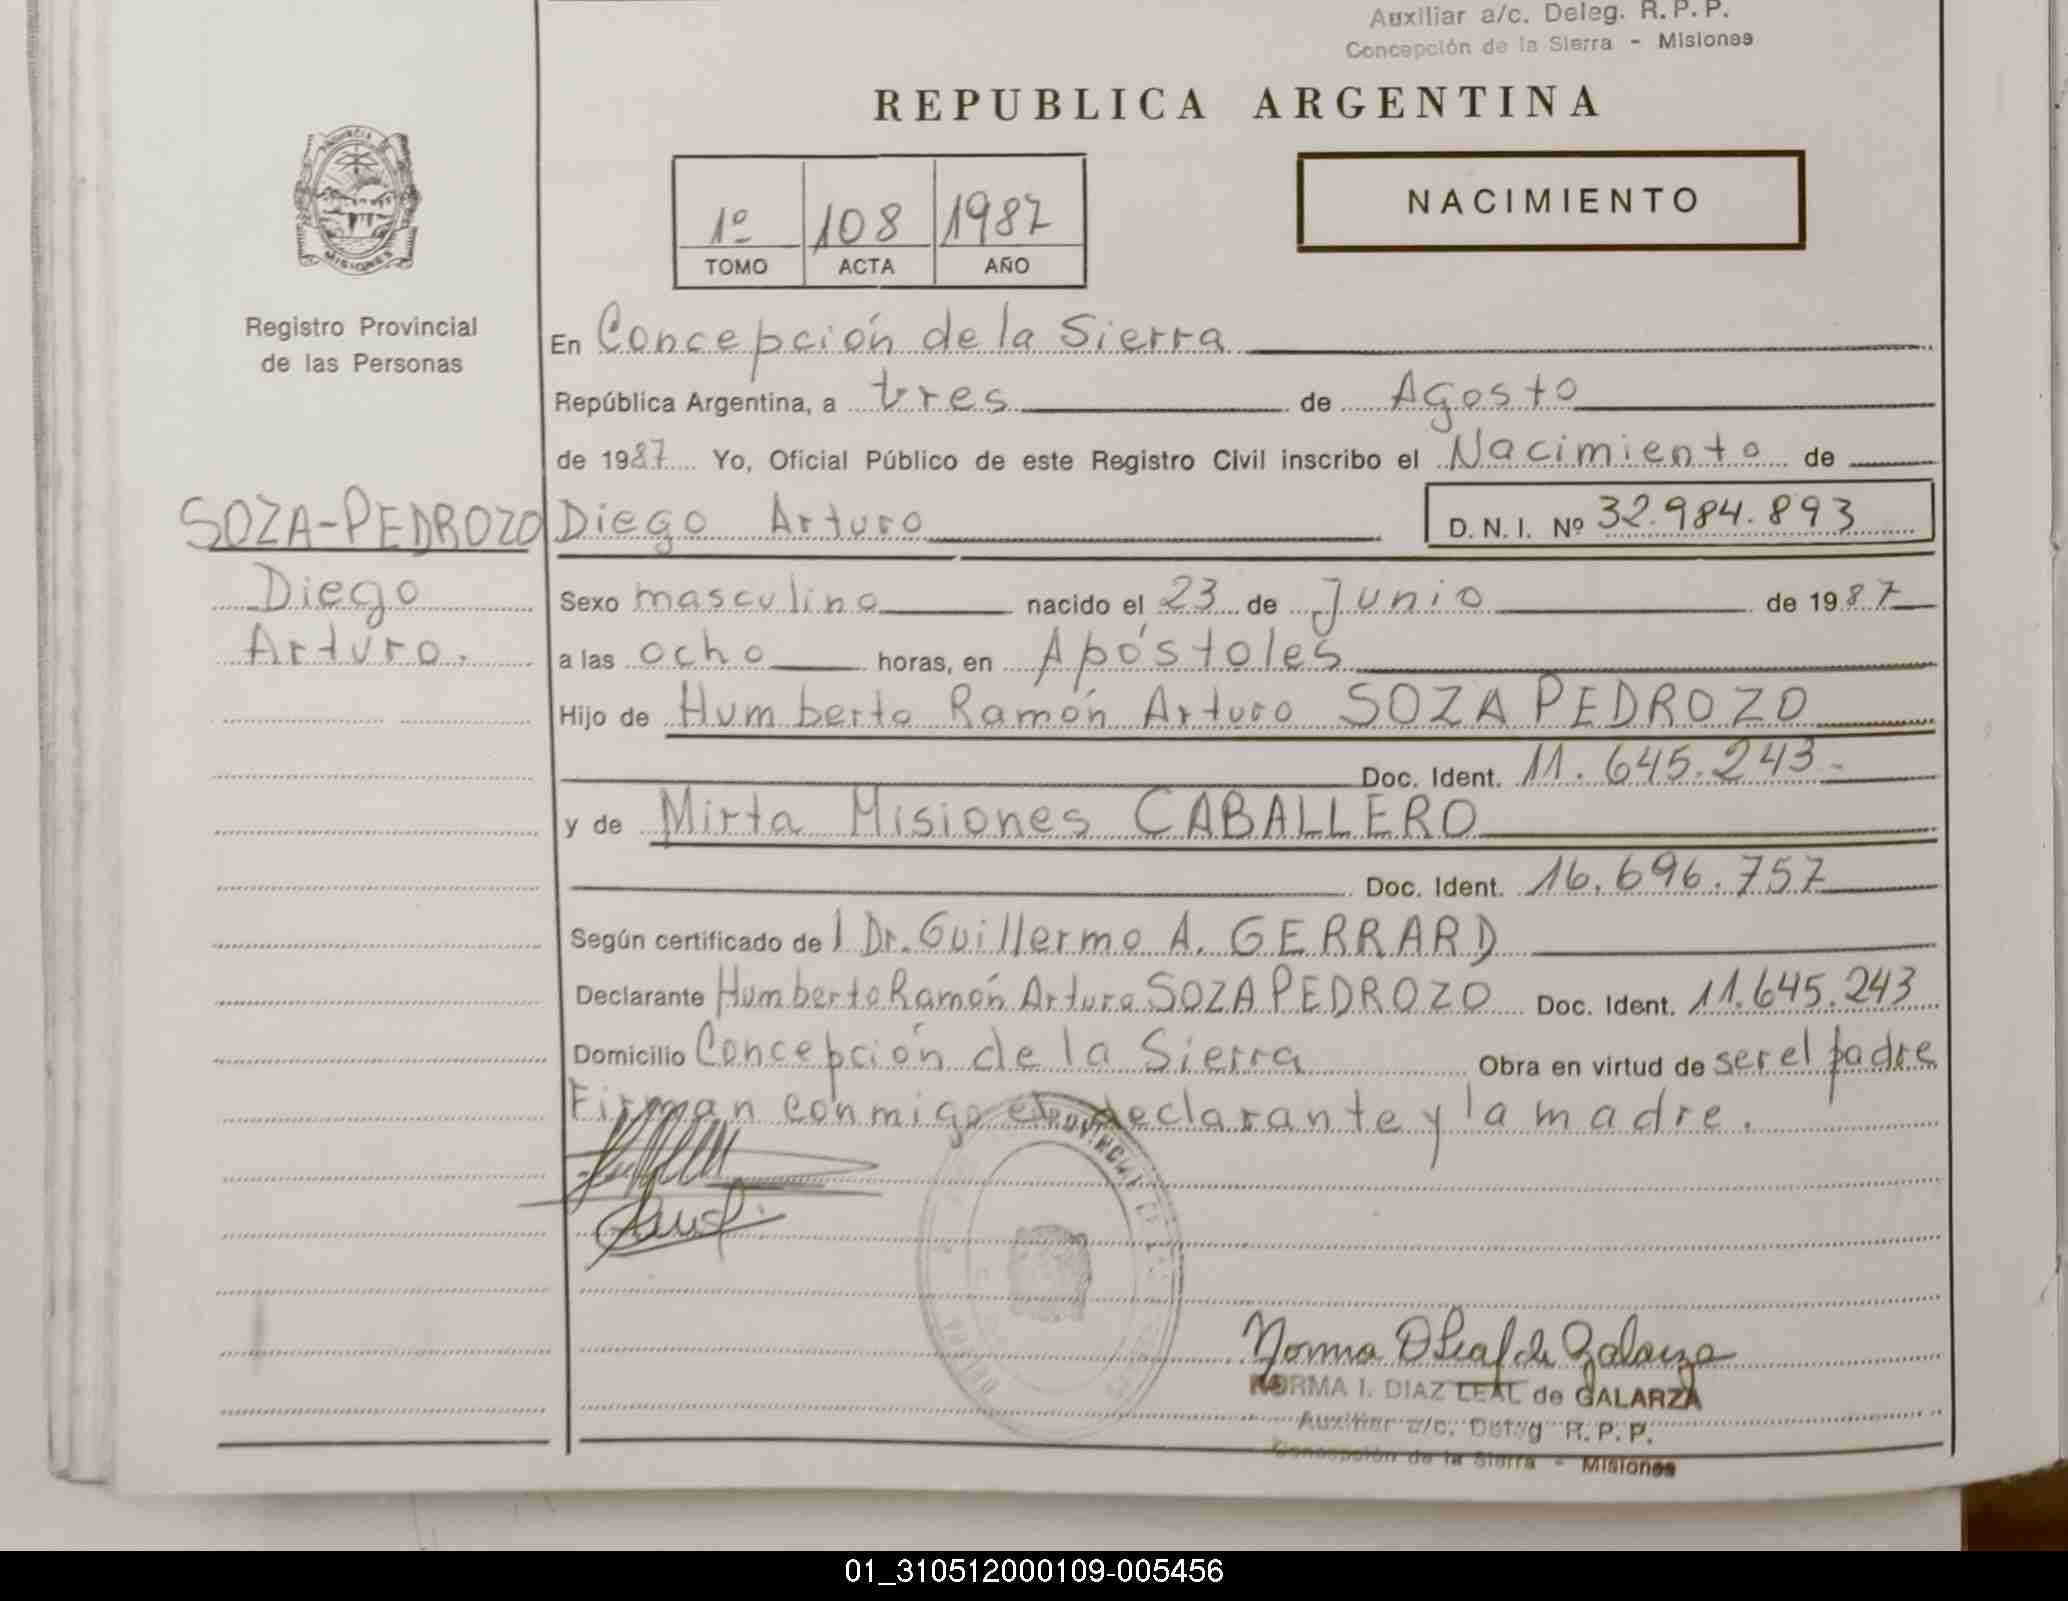 Auxiliar a/c. Deleg. R.P.P.
Concepción de la Sierra - Misiones
REPUBLICA ARGENTINA
PROVINCIA DE
MISIONES
1º 108 1987
TOMO ACTA AÑO
NACIMIENTO
Registro Provincial
de las Personas
En Concepción de la Sierra
República Argentina, a tres de Agosto
de 1987 Yo, Oficial Público de este Registro Civil inscribo el Nacimiento de
SOZA-PEDROZO Diego Arturo D.N.I. Nº 32.984.893
Diego
Arturo.
Sexo masculino nacido el 23 de Junio de 1987
a las ocho horas, en Apóstoles
Hijo de Humberto Ramón Arturo SOZA PEDROZO
Doc. Ident. 11.645.243.-
y de Mirta Misiones CABALLERO
Doc. Ident. 16.696.757
Según certificado del Dr. Guillermo A. GERRARD
Declarante Humberto Ramón Arturo SOZA PEDROZO Doc. Ident. 11.645.243
Domicilio Concepción de la Sierra Obra en virtud de ser el padre
Firman conmigo el declarante y la madre.
PROVINCIAL D
Norma D Leal de Galarza
NORMA I. DIAZ LEAL de GALARZA
Auxiliar a/c. Deleg R.P.P.
Concepción de la Sierra - Misiones
01_310512000109-005456